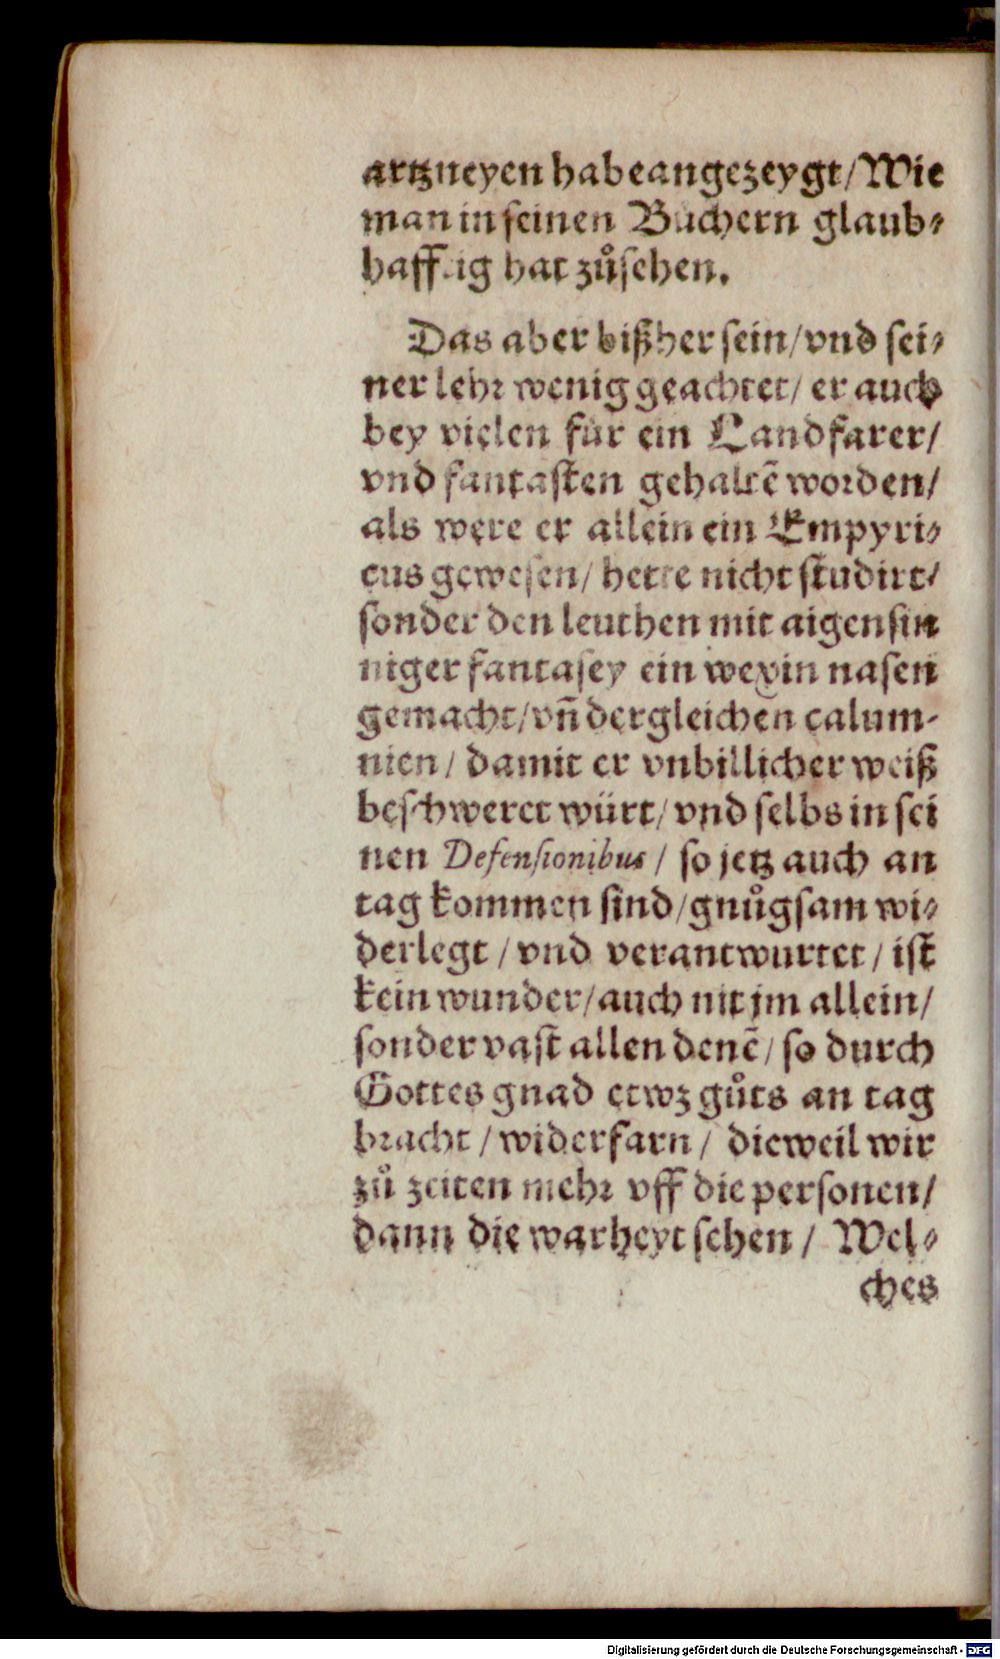 artzneyen habe angezeygt/ Wie
man in seinen Büchern glaub⸗
hafftig hat zůsehen.
Das aber bißher sein/ vnd sei⸗
ner lehr wenig geachtet/ er auch
bey vielen für ein Landfarer/
vnd fantasten gehaltẽ worden/
als were er allein ein Empyri⸗
cus gewesen/ hette nicht studirt/
sonder den leuthen mit aigensin
niger fantasey ein wexin nasen
gemacht/ vñ dergleichen calum-
nien/ damit er vnbillicher weiß
beschweret würt/ vnd selbs in sei
nen Defensionibus/ so jetz auch an
tag kommen sind/ gnůgsam wi⸗
derlegt/ vnd verantwurtet/ ist
kein wunder/ auch nit jm allein/
sonder vast allen denẽ/ so durch
Gottes gnad etwz gůts an tag
bracht/ widerfarn/ dieweil wir
zů zeiten mehr vff die personen/
dann die warheyt sehen/ Wel⸗
ches
Digitalisierung gefördert durch die Deutsche Forschungsgemeinschaft - DFG